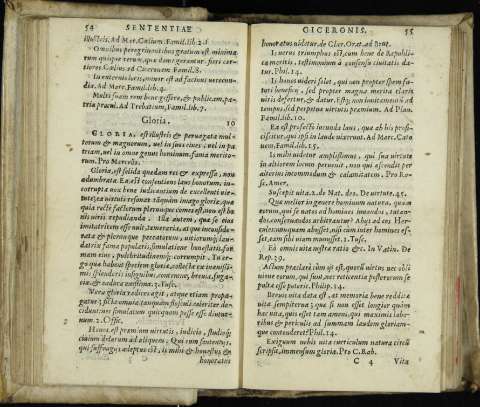 54 SENTENTIAE
illustris. Ad Mar. Cælium. Famil. lib. 2.
Omnibus peregrinantibus gratum est minima-
rum quoque rerum, quæ domi gerantur, fieri cer-
tiores. Cælius ad Ciceronem Famil. 8.
In externis locis, minor est ad facinus verecun-
dia. Ad Mar. Famil. lib. 4.
Multi suam rem bene gessere, & publicam, pa-
tria procul. Ad Trebatium, Famil. lib. 7.
Gloria. 10
GLORIA, est illustris & pervagata mul-
torum & magnorum, vel in suos cives, vel in pa-
triam, vel in omne genus hominum, fama merito-
rum. Pro Marcello.
Gloria, est solida quædam res & expressa, non
adumbrata. Ea est consentiens laus bonorum, in-
corrupta vox bene iudicantium de excellenti vir-
tute; ea virtuti resonat tãquàm imago gloriæ, quæ
quia rectè factorum plerunque comes est, non est bo-
nis viris repudianda. Illa autem, quæ se eius
imitatricem esse vult, temeraria, atque inconside-
rata & plerunque peccatorum, vitiorumque lau-
datrix fama popularis, simulatione honestatis, for-
mam eius, pulchritudinemque corrumpit.
&c. 3. Tusc.
Vera gloria radices agit, atque etiam propa-
gatur: ficta omnia celeriter tanquam flosculi
decidunt: nec simulatum quicquam potest esse diutur-
num. 2. Offic.
Honos est præmium virtutis, iudicio, studioque
civium delatum ad aliquem: Qui eum sententiis,
qui suffragiis adeptus est, is mihi & honestus, &
honoratus
CICERONIS. 55
honoratus videtur. de Clar. Orat. ad Brut.
Is verus triumphus est, cum bene de Republi-
ca meritis, testimonium à consensu civitatis da-
tur. Phil. 14.
Is honos videri solet, qui non propter spem fu-
turi beneficii, sed propter magna merita claris
viris defertur, & datur. Estque non invitamentum ad
tempus, sed perpetuæ virtutis præmium. Ad Plan.
Famil. lib. 10.
Ea est profectò iucunda laus, quæ ab his profi-
ciscitur, qui ipsi in laude vixerunt. Ad Marc. Cato
nem, Famil. lib. 15.
Is mihi videtur amplissimus, qui sua virtute
in altiorem locum pervenit, non qui ascendit per
alterius incommodum & calamitatem. Pro Ro-
sc. Amer.
Suscepit vita. 2. de Nat. deo. De virtute. 45.
Quæ melior in genere hominum natura, quàm
eorum, qui se natos ad homines iuvandos, tutan-
dos, conservandos arbitrantur? Abiit ad deos Her-
cules: nunquam abiisset, nisi cùm inter homines es-
set, eam sibi viam munisset. 1. Tusc.
Ea omnis vita nostra ratio &c. In Vatin. De
Rep. 39.
Actum præclarè cum iis est, quorum virtus nec obli-
vione eorum, qui sunt, nec reticentia posterorum se-
pulta esse poterit. Philip. 14.
Brevis vita data est, at memoria bene redditæ
vitæ sempiterna; quæ si non esset longior quàm
hæc vita, quis esset tam amens, qui maximis labo-
ribus & periculis ad summam laudem gloriam-
que contenderet? Phil. 14.
Exiguum nobis vitæ curriculum natura circũ-
scripsit, immensum gloriæ. Pro C. Rab.
C 4 Vita